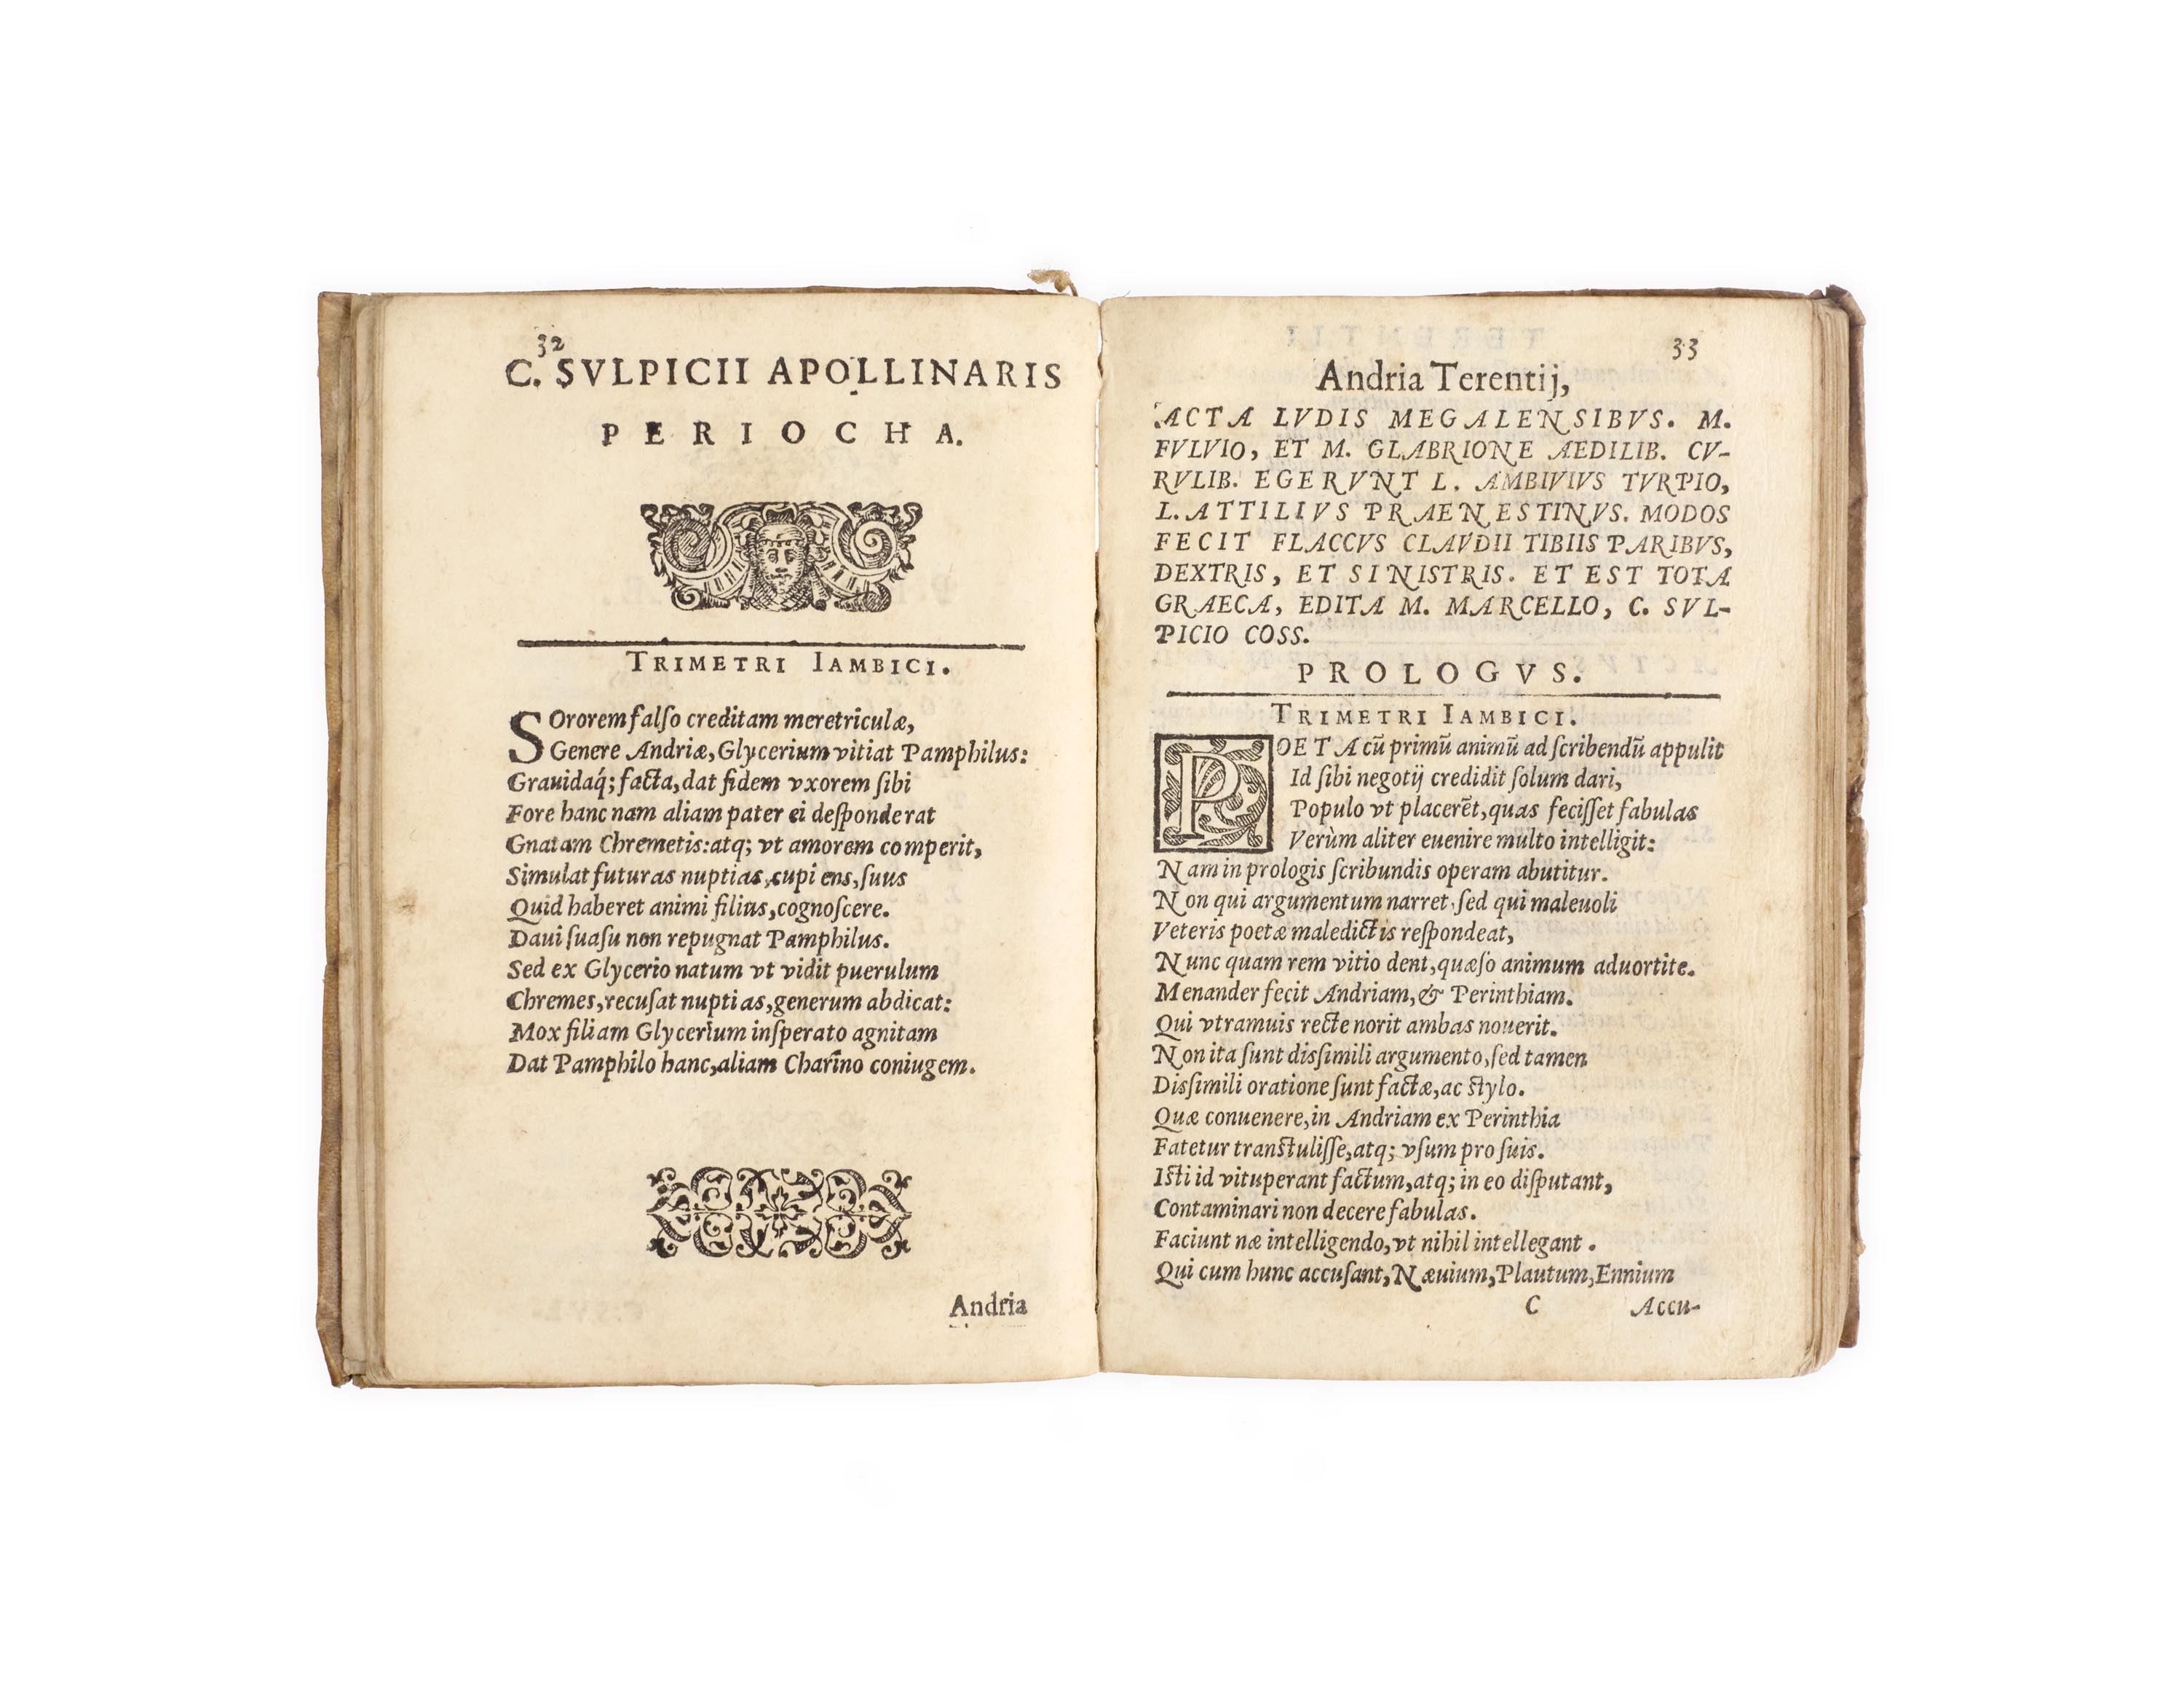 32
C. SVLPICII APOLLINARIS
PERIOCHA.
TRIMETRI IAMBICI.
SOrorem falſo creditam meretriculæ,
Genere Andriæ, Glycerium vitiat Pamphilus:
Grauidaq́; facta, dat fidem vxorem ſibi
Fore hanc nam aliam pater ei deſponderat
Gnatam Chremetis: atq; vt amorem comperit,
Simulat futuras nuptias, cupiens, ſuus
Quid haberet animi filius, cognoſcere.
Daui ſuaſu non repugnat Pamphilus.
Sed ex Glycerio natum vt vidit puerulum
Chremes, recuſat nuptias, generum abdicat:
Mox filiam Glycerium inſperato agnitam
Dat Pamphilo hanc, aliam Charino coniugem.
Andria
33
Andria Terentij,
ACTA LVDIS MEGALENSIBVS. M.
FVLVIO, ET M. GLABRIONE AEDILIB. CV-
RVLIB. EGERVNT L. AMBIVIVS TVRPIO,
L. ATTILIVS PRAENESTINVS. MODOS
FECIT FLACCVS CLAVDII TIBIIS PARIBVS,
DEXTRIS, ET SINISTRIS. ET EST TOTA
GRAECA, EDITA M. MARCELLO, C. SVL-
PICIO COSS.
PROLOGVS.
TRIMETRI IAMBICI.
POETA cū primū animū ad ſcribendū appulit
Id ſibi negotij credidit ſolum dari,
Populo vt placerēt, quas feciſſet fabulas
Verùm aliter euenire multo intelligit:
Nam in prologis ſcribundis operam abutitur.
Non qui argumentum narret, ſed qui maleuoli
Veteris poetæ maledictis reſpondeat,
Nunc quam rem vitio dent, quæſo animum aduortite.
Menander fecit Andriam, & Perinthiam.
Qui vtramuis recte norit ambas nouerit.
Non ita ſunt dissimili argumento, ſed tamen
Dissimili oratione ſunt factæ, ac ſtylo.
Quæ conuenere, in Andriam ex Perinthia
Fatetur tranſtuliſſe, atq; vſum pro ſuis.
Iſti id vituperant factum, atq; in eo diſputant,
Contaminari non decere fabulas.
Faciunt næ intelligendo, vt nihil intellegant.
Qui cum hunc accuſant, Næuium, Plautum, Ennium
C Accu-